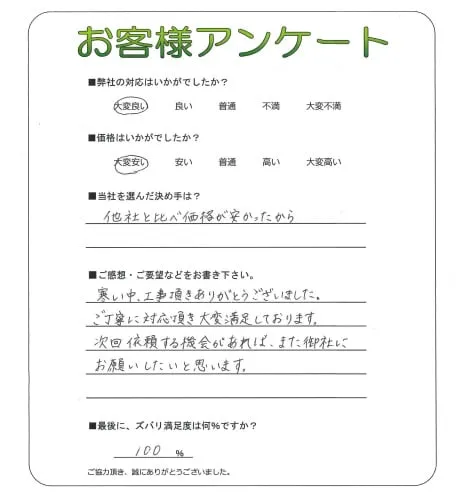 お客様アンケート
■弊社の対応はいかがでしたか？
大変良い 良い 普通 不満 大変不満
■価格はいかがでしたか？
大変安い 安い 普通 高い 大変高い
■当社を選んだ決め手は？
他社と比べ価格が安かったから
■ご感想・ご要望などをお書き下さい。
寒い中、工事頂きありがとうございました。
ご丁寧に対応頂き大変満足しております。
次回依頼する機会があれば、また御社に
お願いしたいと思います。
■最後に、ズバリ満足度は何％ですか？
100 ％
ご協力頂き、誠にありがとうございました。